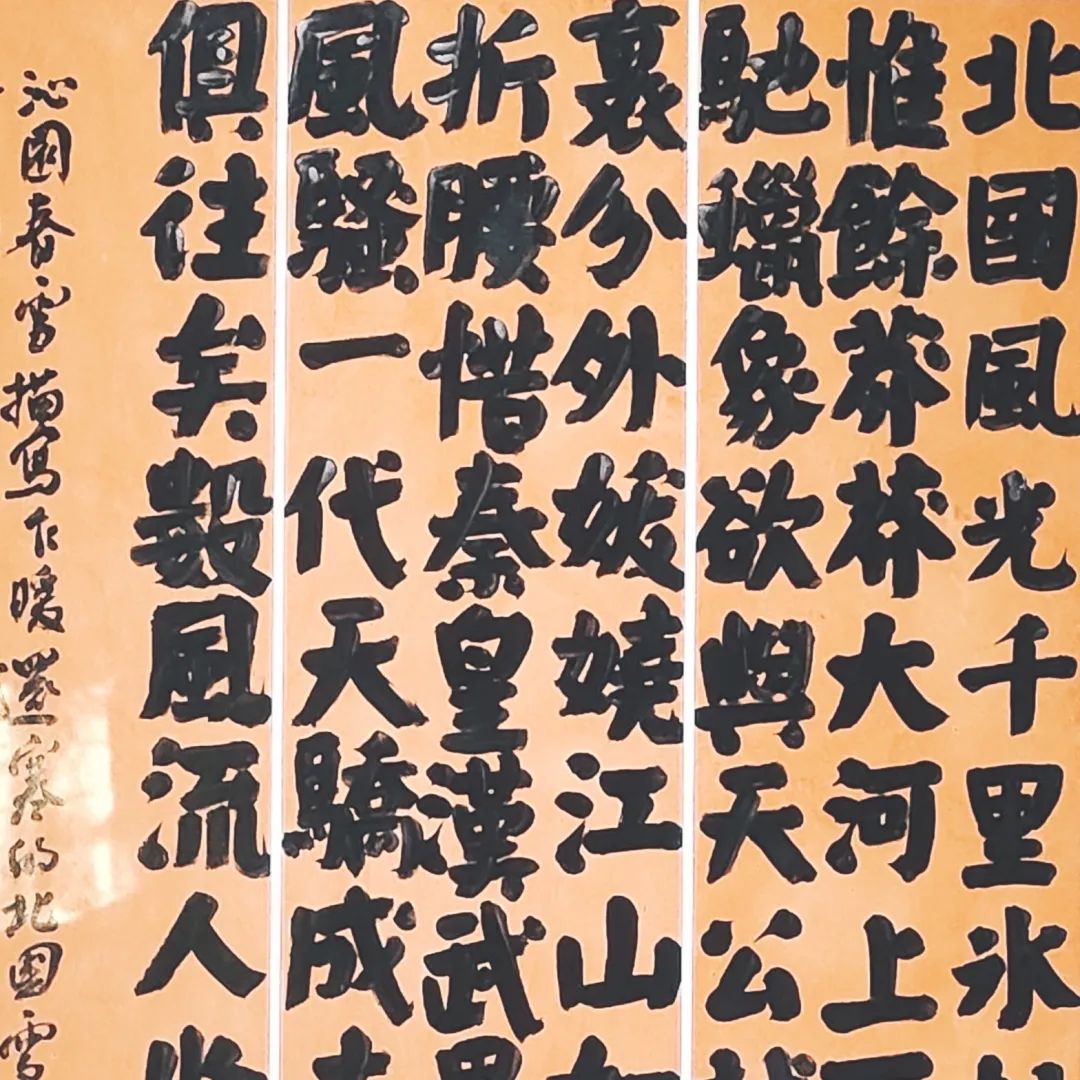 北國風光千里氷
惟餘莽莽大河上
馳蠟象欲與天公
裹分外妖嬈江山
折腰惜秦皇漢武
風騷一代天驕成
俱往矣數風流人
沁園春雪描寫乍暖還寒的北國雪